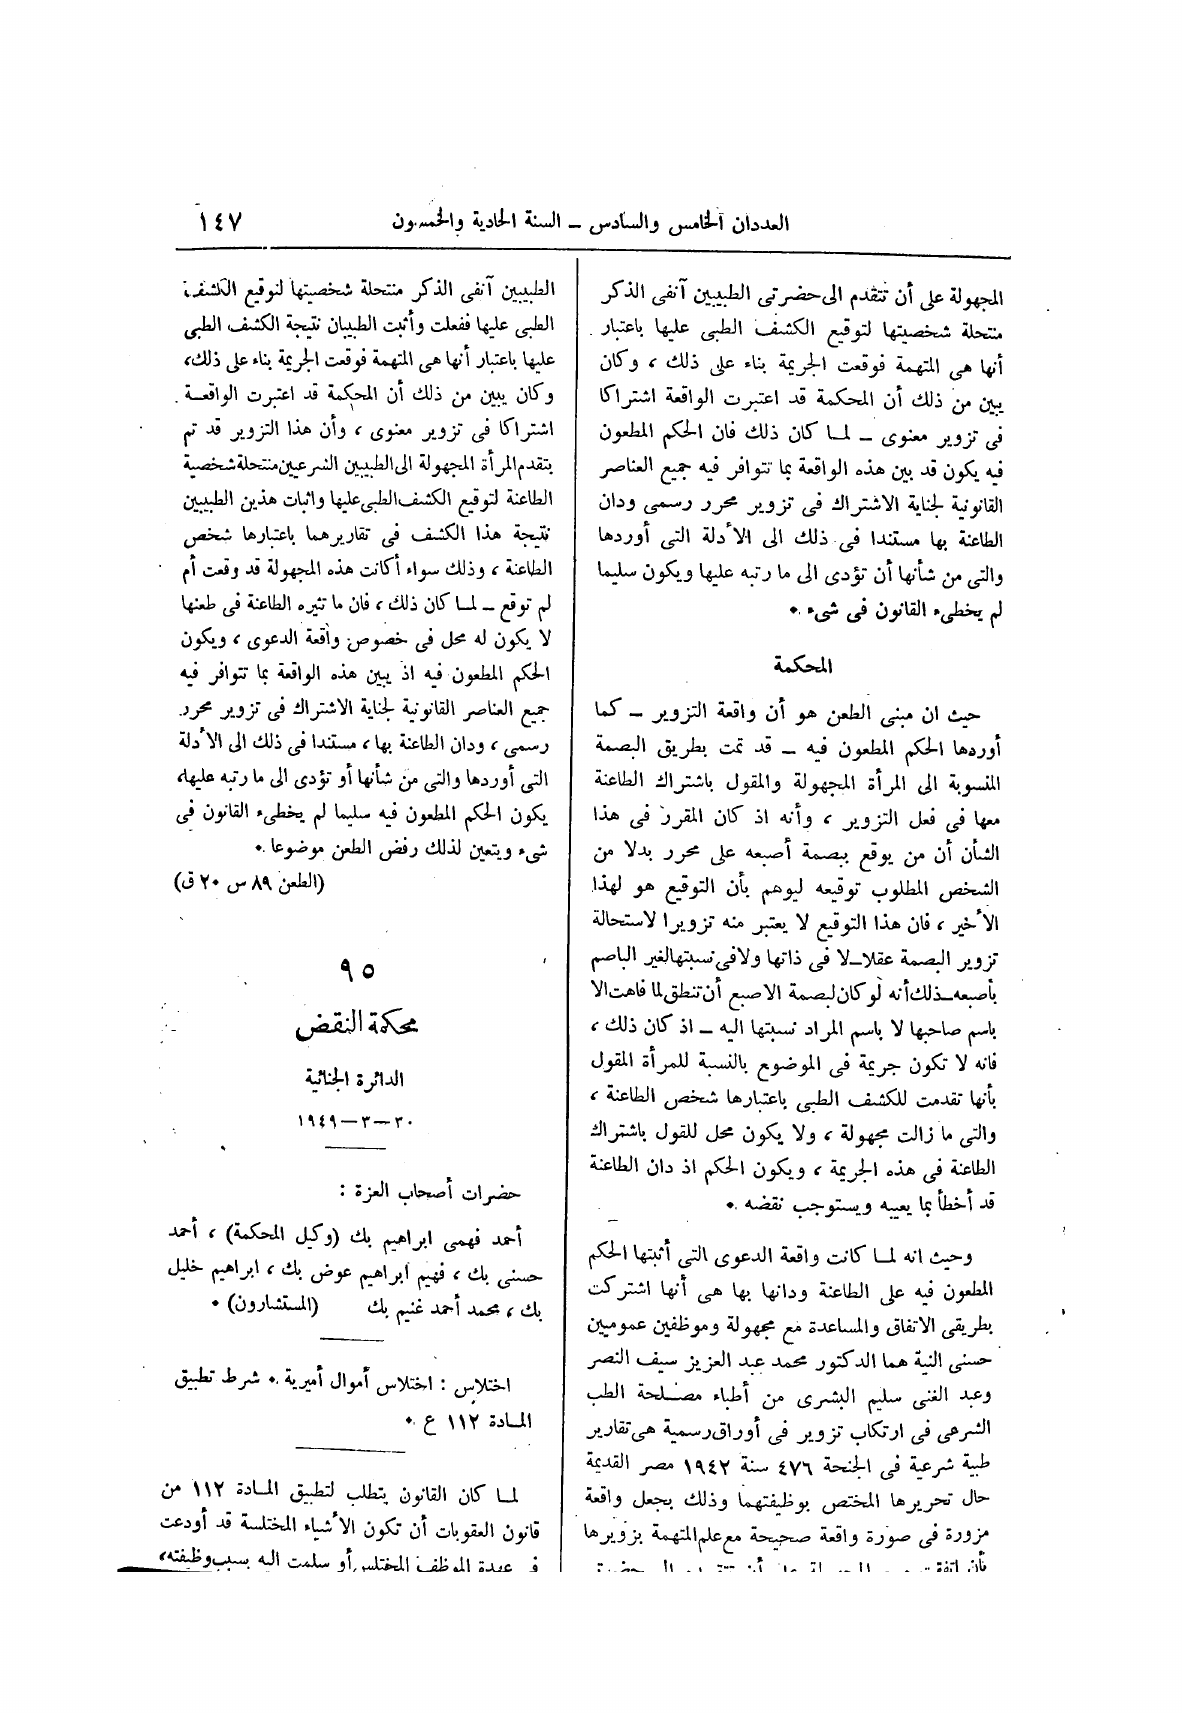 العددان الخامس والسادس – السنة الحادية والخمسون
١٤٧
المجهولة على أن تتقدم الى حضرتى الطبيبين آنفى الذكر
منتحلة شخصيتها لتوقيع الكشف الطبى عليها باعتبار
أنها هى المتهمة فوقعت الجريمة بناء على ذلك ، وكان
يبين من ذلك أن المحكمة قد اعتبرت الواقعة اشتراكا
فى تزوير معنوى – لما كان ذلك فان الحكم المطعون
فيه يكون قد بين هذه الواقعة بما تتوافر فيه جميع العناصر
القانونية لجناية الاشتراك فى تزوير محرر رسمى ودان
الطاعنة بها مستندا فى ذلك الى الأدلة التى أوردها
والتى من شأنها أن تؤدى الى ما رتبه عليها ويكون سليما
لم يخطىء القانون فى شىء ٠
المحكمة
حيث ان مبنى الطعن هو أن واقعة التزوير – كما
أوردها الحكم المطعون فيه – قد تمت بطريق البصمة
المنسوبة الى المرأة المجهولة والمقول باشتراك الطاعنة
معها فى فعل التزوير ، وأنه اذ كان المقرر فى هذا
الشأن أن من يوقع ببصمة أصبعه على محرر بدلا من
الشخص المطلوب توقيعه ليوهم بأن التوقيع هو لهذا
الأخير ، فان هذا التوقيع لا يعتبر منه تزويرا لاستحالة
تزوير البصمة عقلا–لا فى ذاتها ولافى نسبتهالغير الباصم
بأصبعه–ذلك أنه لو كان لبصمة الاصبع أن تنطق لما فاهت الا
باسم صاحبها لا باسم المراد نسبتها اليه – اذ كان ذلك ،
فانه لا تكون جريمة فى الموضوع بالنسبة للمرأة المقول
بأنها تقدمت للكشف الطبى باعتبارها شخص الطاعنة ،
والتى ما زالت مجهولة ، ولا يكون محل للقول باشتراك
الطاعنة فى هذه الجريمة ، ويكون الحكم اذ دان الطاعنة
قد أخطأ بما يعيبه ويستوجب نقضه ٠
وحيث انه لما كانت واقعة الدعوى التى أثبتها الحكم
المطعون فيه على الطاعنة ودانها بها هى أنها اشتركت
بطريقى الاتفاق والمساعدة مع مجهولة وموظفين عموميين
حسنى النية هما الدكتور محمد عبد العزيز سيف النصر
وعبد الغنى سليم البشرى من أطباء مصلحة الطب
الشرعى فى ارتكاب تزوير فى أوراق رسمية هى تقارير
طبية شرعية فى الجنحة ٤٧٦ سنة ١٩٤٢ مصر القديمة
حال تحريرها المختص بوظيفتهما وذلك بجعل واقعة
مزورة فى صورة واقعة صحيحة مع علم المتهمة بزويرها
بأن اتفقت مع المجهولة على أن تتقدم الى حضرتى
الطبيبين آنفى الذكر منتحلة شخصيتها لتوقيع الكشف
الطبى عليها ففعلت وأثبت الطبيبان نتيجة الكشف الطبى
عليها باعتبار أنها هى المتهمة فوقعت الجريمة بناء على ذلك،
وكان يبين من ذلك أن المحكمة قد اعتبرت الواقعة
اشتراكا فى تزوير معنوى ، وأن هذا التزوير قد تم
بتقدم المرأة المجهولة الى الطبيبين الشرعيين منتحلة شخصية
الطاعنة لتوقيع الكشف الطبى عليها واثبات هذين الطبيبين
نتيجة هذا الكشف فى تقاريرهما باعتبارها شخص
الطاعنة ، وذلك سواء أكانت هذه المجهولة قد وقعت أم
لم توقع – لما كان ذلك ، فان ما تثيره الطاعنة فى طعنها
لا يكون له محل فى خصوص واقعة الدعوى ، ويكون
الحكم المطعون فيه اذ يبين هذه الواقعة بما تتوافر فيه
جميع العناصر القانونية لجناية الاشتراك فى تزوير محرر
رسمى ، ودان الطاعنة بها ، مستندا فى ذلك الى الأدلة
التى أوردها والتى من شأنها أو تؤدى الى ما رتبه عليها،
يكون الحكم المطعون فيه سليما لم يخطىء القانون فى
شىء ويتعين لذلك رفض الطعن موضوعا ٠
(الطعن ٨٩ س ٢٠ ق)
٩٥
محكمة النقض
الدائرة الجنائية
٣٠–٣–١٩٤٩
حضرات أصحاب العزة :
أحمد فهمى ابراهيم بك (وكيل المحكمة) ، أحمد
حسنى بك ، فهيم ابراهيم عوض بك ، ابراهيم خليل
بك ، محمد أحمد غنيم بك (المستشارون) ٠
اختلاس : اختلاس أموال أميرية ٠ شرط تطبيق
المادة ١١٢ ع ٠
لما كان القانون يتطلب لتطبيق المادة ١١٢ من
قانون العقوبات أن تكون الأشياء المختلسة قد أودعت
فى عهدة الموظف المختلس أو سلمت اليه بسبب وظيفته،